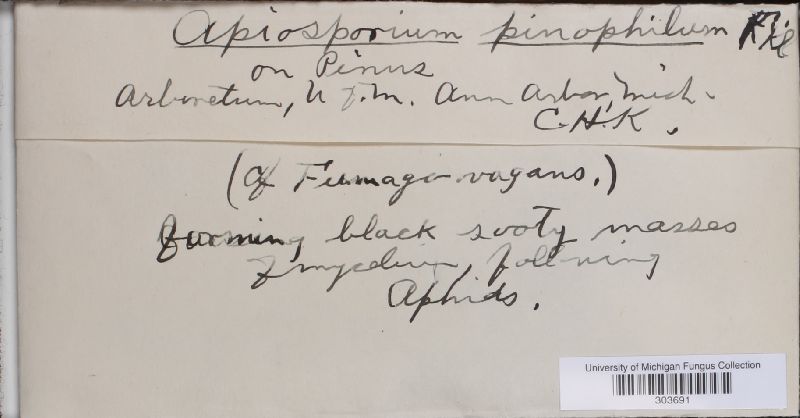 Apiosporium pinophilum Fkl
on Pinus
Arboretum, U of M. Ann Arbor, Mich.
C.H.K.
(Cf Fumago vagans.)
forming black sooty masses
of mycelium, following
Aphids.
University of Michigan Fungus Collection
303691